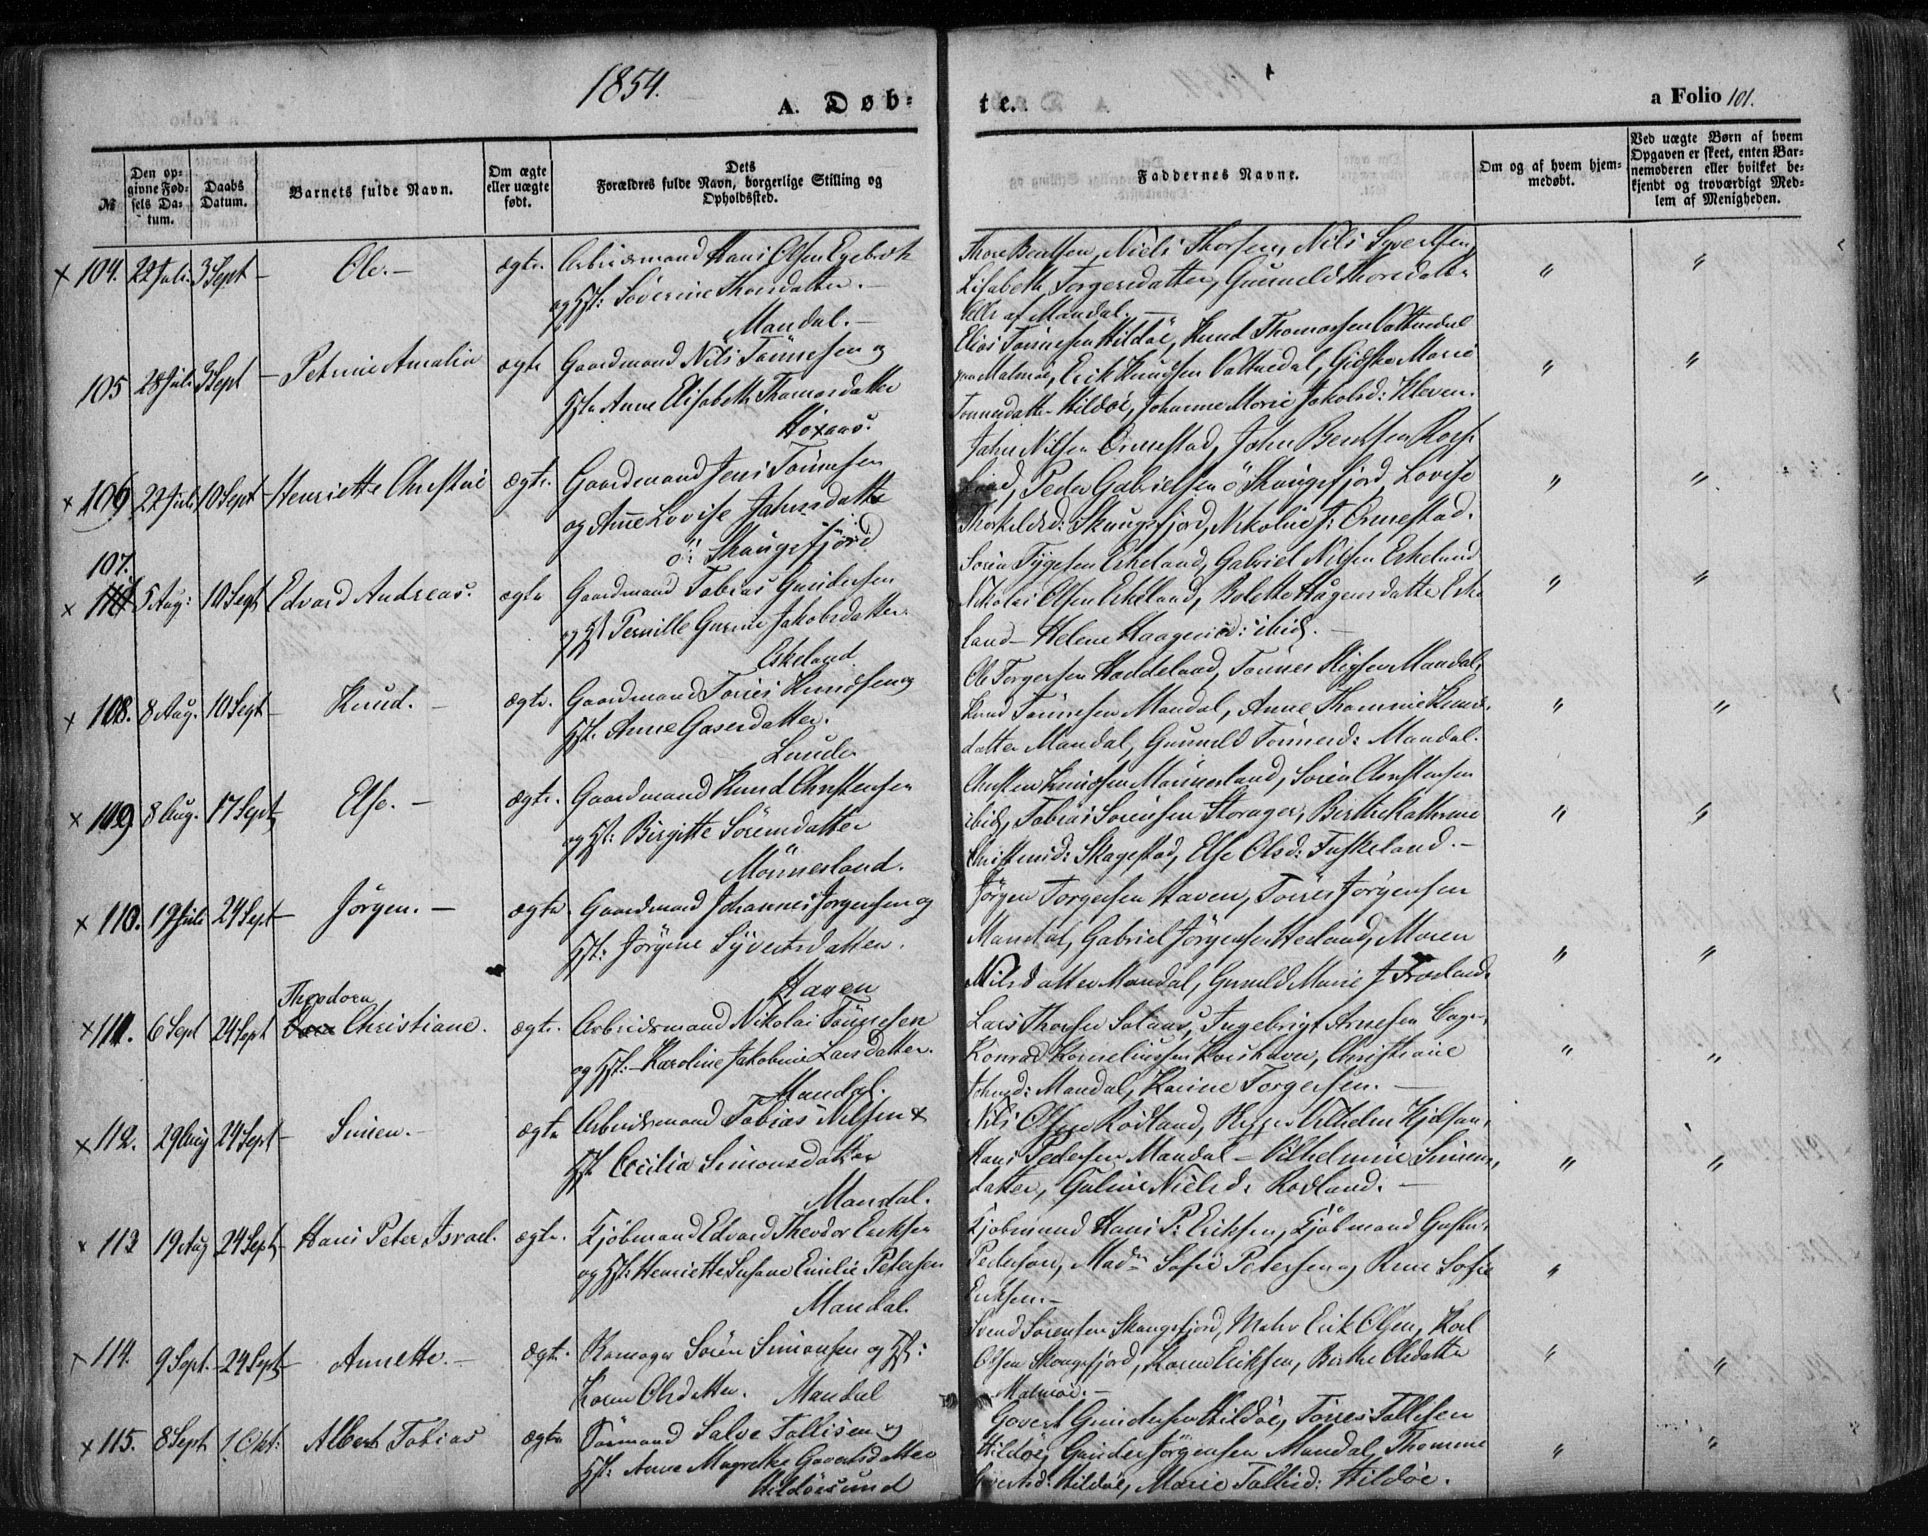 1854.
A. Døb-
te.
a Folio 101.
№
Den op-
givne Fød-
sels Da-
tum.
Daabs
Datum.
Barnets fulde Navn.
Om ægte
eller uægte
født.
Dets
Forældres fulde Navn, borgerlige Stilling og
Opholdssted.
Faddernes Navne.
Om og af hvem hjem-
medøbt.
Ved uægte Børn af hvem
Opgaven er skeet, enten Bar-
nemoderen eller hvilket be-
kjendt og troværdigt Med-
lem af Menigheden.
× 104. 22 Juli 3 Sept - Ole. - ægte. Arbeidsmand Hans Olsen Egebæk
og Hst: Søverine Thorsdatter. -
Mandal. -
Thore Bentsen, Niels Thorsen, Nils Syvertsen,
Lisabeth Torgersdatter, Gunneld Thoresdatter
alle af Mandal. -
105 28 Juli 3 Sept - Petrine Amalia ægte Gaardmand Nils Tønnesen og
Hst. Anne Elisabeth Thomasdatter
Høxaas.
Elias Tønnesen Hildøe, Knud Thomassen Vattnedal
Malmøe, Erik Knudsen Vattnedal, Marie
Tønnesdatter Hildøe, Johanne Marie Jakobsd: Kleven.
× 106 22 Juli 10 Sept Henriette Christine ægte. Gaardmand Jens Tønnesen
og Anne Lovise Jahnsdatter
ö: Skaugsfjord
Jahn Nilsen Ormestad, John Bentsen Ros-
land, Peder Gabrielsen ö Skaugsfjord, Lovise
Thorkildsd: Skaugsfjord, Nikoline J: Ormestad.
107.
× 5 Aug: 10 Sept Edvard Andreas. ægte Gaardmand Tobias Gundersen
og Hst Pernille Gurine Jakobsdatter
Eskeland
Søren Tygesen Eskeland, Gabriel Nilsen Eskeland
Nikolai Olsen Eskeland, Bolette Haagensdatter Eske
land - Helene Haagensd: ibid. -
× 108. 8 Aug. 10 Sept - Knud. - ægte. Gaardmand Tørres Knudsen og
Hst. Anne Gasersdatter.
Lunde
Ole Torgersen Haddeland, Tønnes Mandal,
Knud Tønnesen Mandal, Anne Thomine Knuds-
datter Mandal, Gunneld Tønnesd: Mandal.
× 109. 8 Aug. 17 Sept, Else. - ægte. Gaardmand Knud Christensen
og Hst: Birgitte Sörensdatter
Mönnesland.
Christen Knudsen Mönnesland, Sören Christensen
ibid, Tobias Sörensen Storager, Berthe Kathrine
Christensd: Skagestad, Else Olsd: Fuskeland. -
× 110. 17 Juli 24 Sept - Jörgen. - ægte. Gaardmand Johannes Jørgensen og
Hst: Jørgine Syvertsdatter.
Haven
Jörgen Torgersen Haven, Tørres Jørgensen
Mandal, Gabriel Jørgensen Mesland, Maren
Nilsdatter Mandal, Gunneld Marie J Frøsland
× 111. 6 Sept 24 Sept Theodora Christiane. ægte. Arbeidsmand Nikolai Tönnesen
og Hst: Karoline Jakobine Larsdatter.
Mandal.
Lars Thorsen Salaas, Ingebrigt Arnesen
Konrad Korneliussen Korshavn, Christiane
Johnsd: Mandal, Karine Torgersen. -
× 112. 29 Aug 24 Sept - Simen. - ægte Arbeidsmand Tobias Nilsen &
Hst Cecilia Simonsdatter
Mandal.
Nils Olsen Rødland, Vilhelm
Hans Pedersen Mandal - Vilhelmine Simens-
datter, Guline Nielsd: Rødland. -
× 113 19 Aug 24 Sept - Hans Peter Israel. ægte. Kjøbmand Edvard Theodor Eriksen
og Hst: Henriette Susane Emilie Petersen
Mandal.
Kjøbmand Hans P: Eriksen, Kjøbmand Gustav
Pedersen, Madm Sofie Petersen og Sofie
Eriksen. -
× 114. 9 Sept. - 24 Sept - Annette. - ægte. Sören Simonsen og Hst:
Karen Olsdatter. Mandal
Svend Sorensen Skaugsfjord, Erik Olsen, Karl
Olsen Skougsfjord, Karen Eriksen, Birthe Olsdatter
Malmøe. -
× 115. 8 Sept 1 Okt: Albert Tobias ægte Sømand Salve Tallisen og
Hst: Anne Magrethe Govertsdatter
Hildøesund
Govert Gundersen Hildöe, Tørres Tallesen
Hildøe, Gunder Jörgensen Mandal, Thomine
Govertsd: Hildöe, Marie Tallisd: Hildøe.